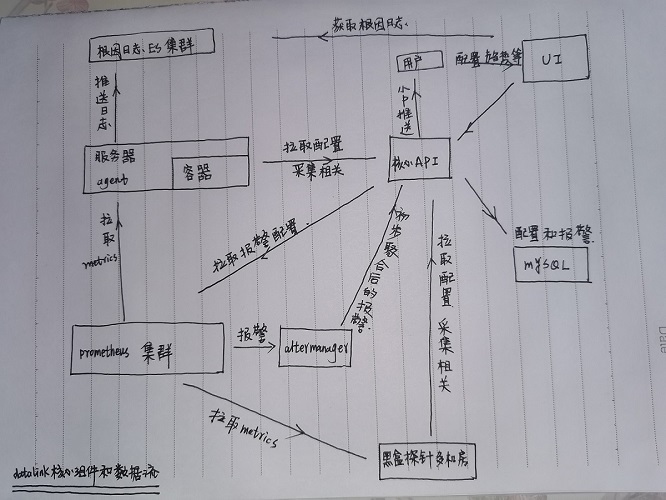 获取根因日志
根因日志、ES 集群
用户
配置趋势等
UI
推送日志
分户推送
服务器
agent
容器
拉取配置
采集相关
核心API
拉取metrics
拉取报警配置
初步聚合后的报警
拉取配置 采集相关
配置和报警
mySQL
prometheus 集群
报警
altermanager
拉取metrics
黑盒探针多机房
datalink核心组件和数据流